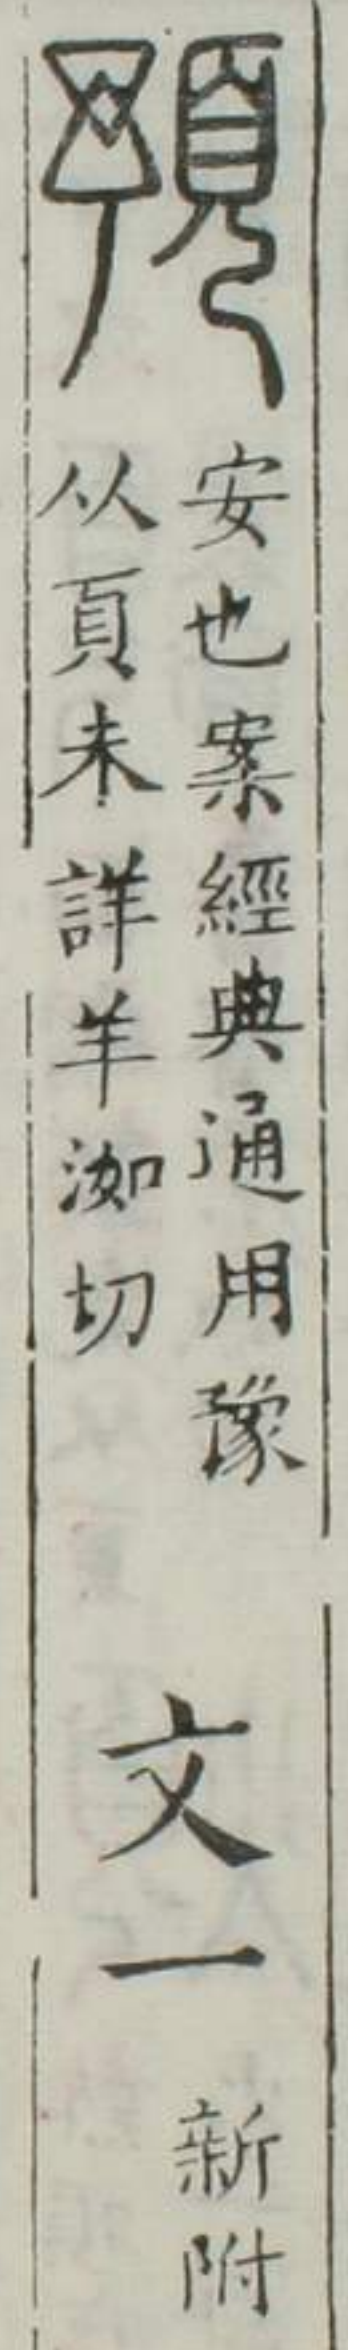 預
安也案經典通用豫
从頁未詳羊洳切
文一
新附